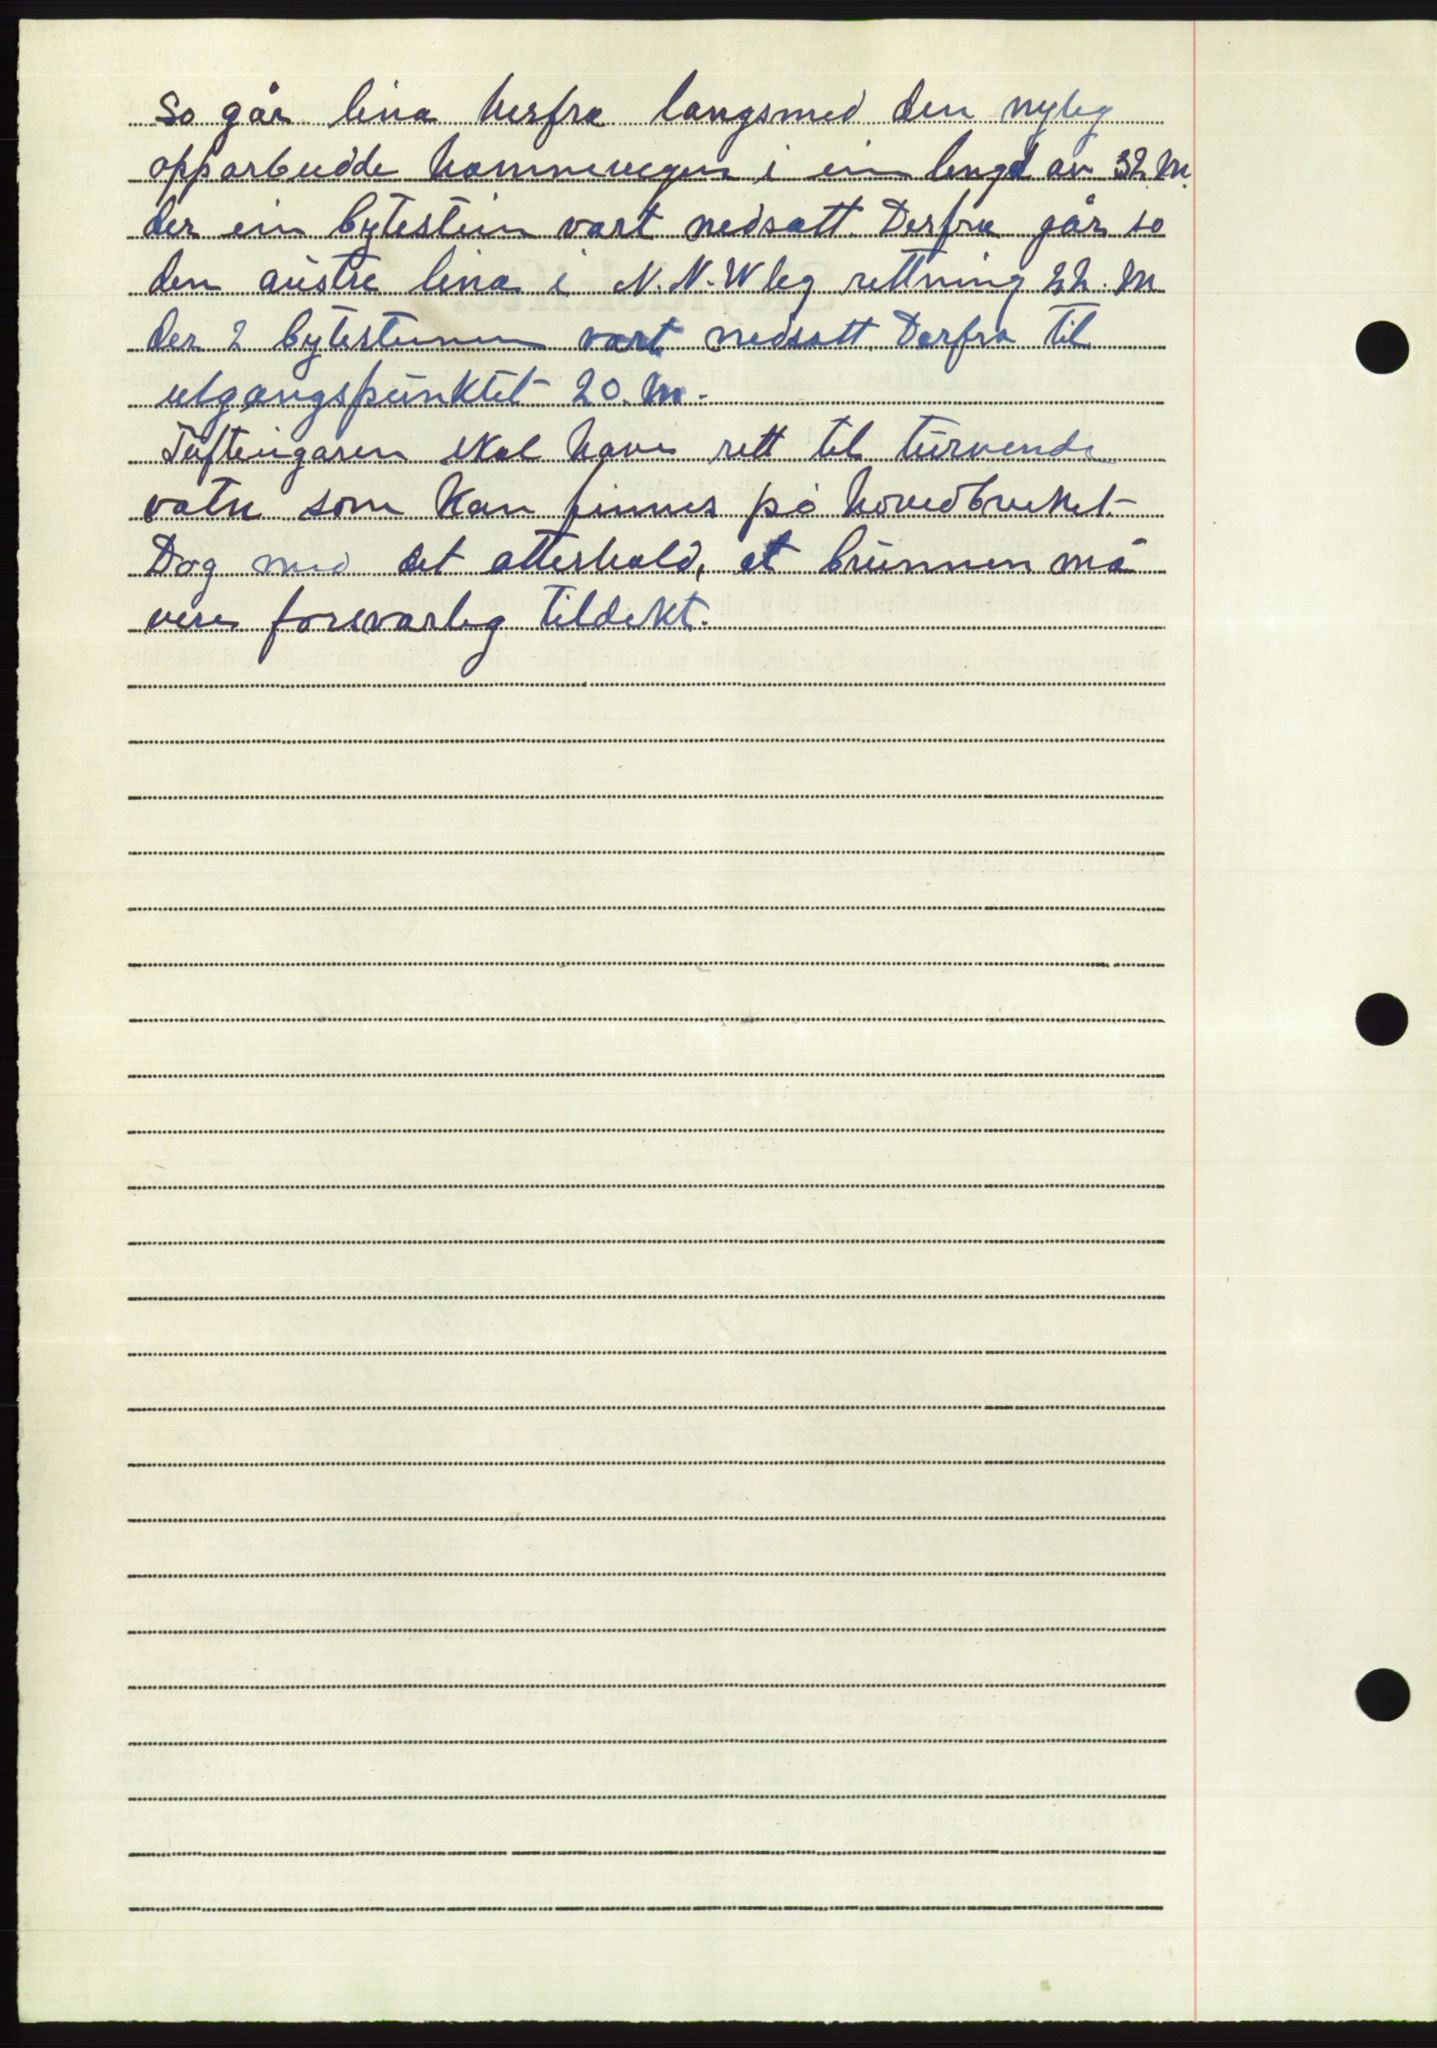 So går lina herfra langsmed den nyleg
opparbeidde hamnevegen i ein lengd av 32 m.
der ein bytestein vart nedsatt. Derfra går so
den austre lina i N.N.W leg rettning 22. m
der 2 bytesteinen vart nedsatt. Derfra til
utgangspunktet 20. m.
Tuftingaren skal have rett til turvende
vatn som kan finnes på hovedbruket.
Dog med det atterhald, at brunnen må
vere forsvarleg tildekt.